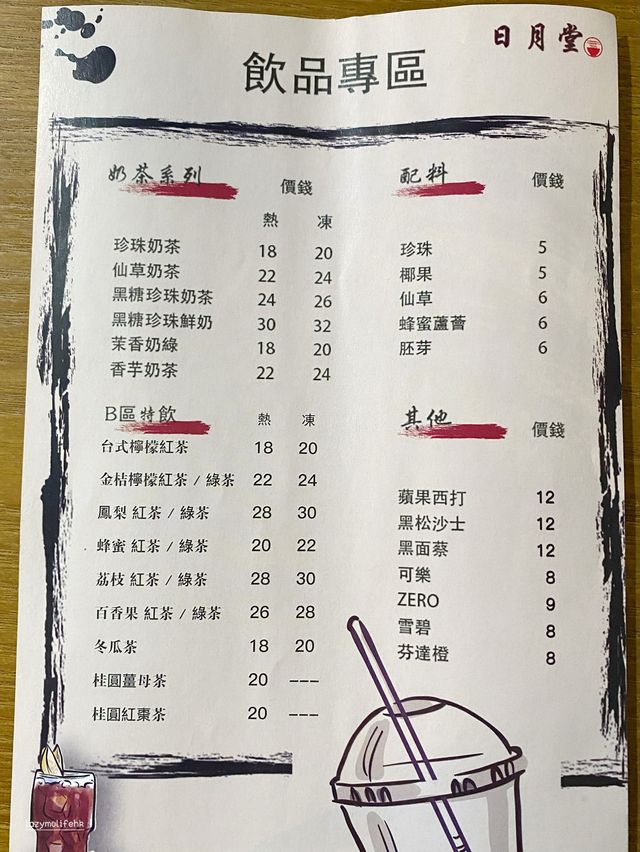 日月堂
飲品專區
奶茶系列 價錢
熱 凍
珍珠奶茶 18 20
仙草奶茶 22 24
黑糖珍珠奶茶 24 26
黑糖珍珠鮮奶 30 32
茉香奶綠 18 20
香芋奶茶 22 24
B區特飲 熱 凍
台式檸檬紅茶 18 20
金桔檸檬紅茶 / 綠茶 22 24
鳳梨 紅茶 / 綠茶 28 30
蜂蜜 紅茶 / 綠茶 20 22
荔枝 紅茶 / 綠茶 28 30
百香果 紅茶 / 綠茶 26 28
冬瓜茶 18 20
桂圓薑母茶 20 ---
桂圓紅棗茶 20 ---
配料 價錢
珍珠 5
椰果 5
仙草 6
蜂蜜蘆薈 6
胚芽 6
其他 價錢
蘋果西打 12
黑松沙士 12
黑面蔡 12
可樂 8
ZERO 9
雪碧 8
芬達橙 8
cozymolifehk